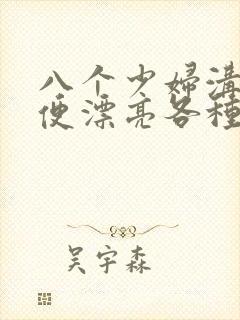 八个少婦溝
便漂亮各種
吴宇森